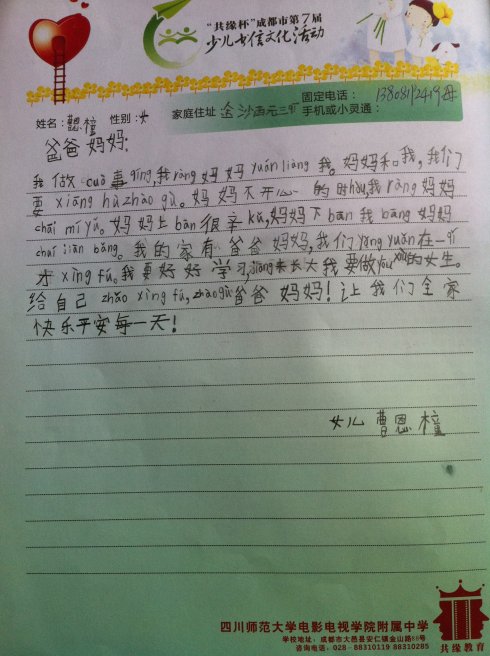 “共缘杯”成都市第7届
少儿书信文化活动
姓名： 性别：女
家庭住址 金沙西元三 固定电话：
手机或小灵通：
爸爸妈妈：
我做cuò事qíng，我ràng妈妈yuán liàng我。妈妈和我，我们
要xiāng hù zhào gù。妈妈不开心的时hòu，我ràng妈妈
chāi mí yǔ。妈妈上bān很辛kǔ，妈妈下bān我bāng妈妈
chuí jiān bǎng。我的家有爸爸妈妈，我们yǒng yuǎn在一qǐ
才xìng fú。我要好好学习，jiāng来长大我要做yōu xiù的女生。
给自己zhǎo xìng fú，zhào gù爸爸妈妈！让我们全家
快乐平安每一天！
女儿 曹恩橦
四川师范大学电影电视学院附属中学
学校地址：成都市大邑县安仁镇金山路88号
咨询电话：028-88310119 88310285
共缘教育